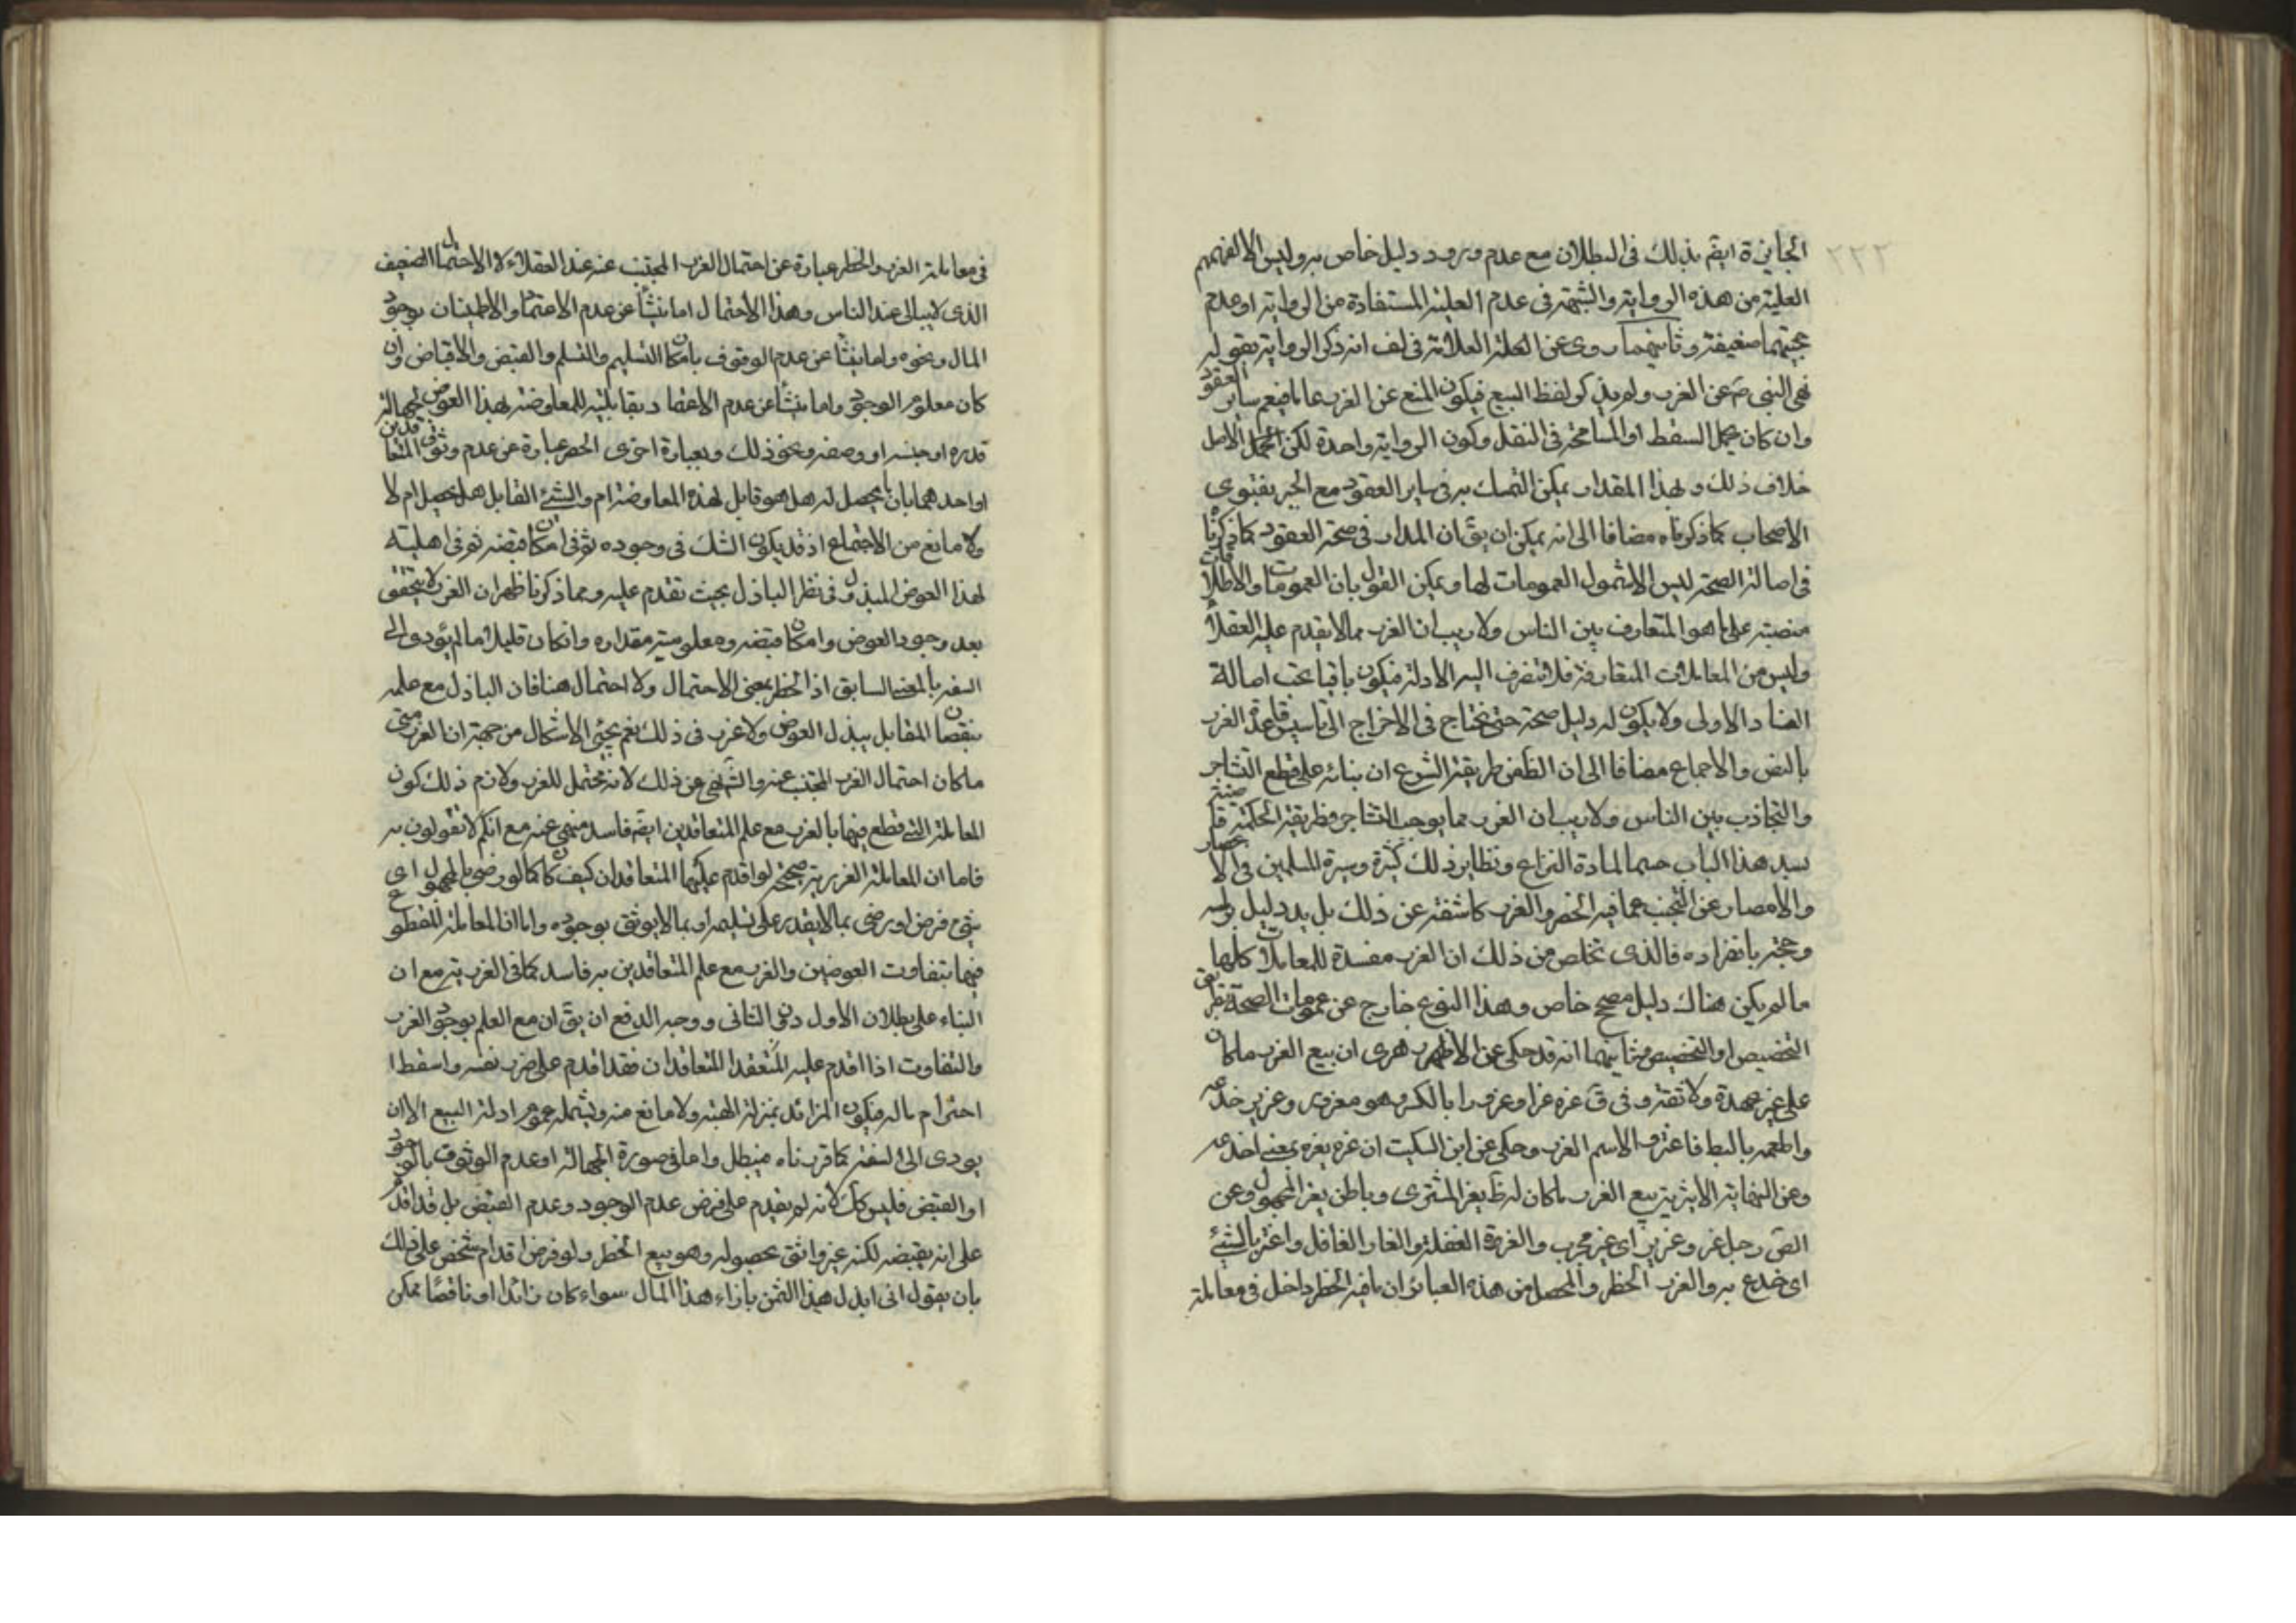 الجايزة ايضم بذلك فى البطلان مع عدم ورود دليل خاص به وليس الا لفهمهم
العلية من هذه الرواية والشبهة فى عدم العلية المستفادة من الرواية او عدم
حجيتها ضعيفة وثانيهما روى عن العلة العلامة فى لف انه ذكر الرواية بقوله
نهى النبى ص عن الغرر ولم يذكر لفظ البيع فيكون المنع عن الغرر عاما فيعم ساير العقود
وان كان يحتمل السقط او المسامحة فى النقل وكون الرواية واحدة لكن الاصل
خلاف ذلك وبهذا المقدار يمكن التمسك به فى ساير العقود مع الجبر بفتوى
الاصحاب كما ذكرناه مضافا الى انه يمكن ان يق ان المدار فى صحة العقود كما ذكرنا
فى اصالة الصحة ليس الا شمول العمومات لها ويمكن القول بان العمومات والاطلاقات
منصبة على ما هو المتعارف بين الناس ولا ريب ان الغرر مما لا يقدم عليه العقلاء
وليس من المعاملات المتعارفة فلا تنصرف اليه الادلة فيكون باقيا تحت اصالة
الفساد الاولى ولا يكون له دليل صحة حتى نحتاج فى الاخراج الى تاسيس قاعدة الغرر
بالنص والاجماع مضافا الى ان الظ من طريقة الشرع ان بنائه على قطع التشاجر
والتجاذب بين الناس ولا ريب ان الغرر مما يوجب التشاجر وطريقة الحكمة مقتضية
بسد هذا الباب حسما لمادة النزاع ونظاير ذلك كثيرة وسيرة المسلمين فى الاعصار
والامصار عن التجنب عما فيه الخطر والغرر كاشفة عن ذلك بل يد دليل براسه
وحجة بانفراده فالذى تخلص من ذلك ان الغرر مفسدة للمعاملات كلها
ما لم يكن هناك دليل مصحح خاص وهذا النوع خارج عن عمومات الصحة بطريق
التخصيص او التخصص وثانيهما انه قد حكى عن الازهرى ان بيع الغرر ما كان
على غير عهدة ولا ثقة وفى ق غره غرا وغرورا بالكسر فهو مغرور وغرير خدعه
واطمعه بالباطل فاغتر والاسم الغرر وحكى عن ابن السكيت ان غره يغره بمعنى اخدعه
وعن النهاية الاثيرية بيع الغرر ما كان له ظ يغر المشترى وباطن يغر المجهول وعن
الص رجل غر وغرير اى غير مجرب والغرة الغفلة والغار الغافل واغتر بالشئ
اى خدع به والغرر الخطر والمحصل من هذه العبائر ان ما فيه الخطر داخل فى معاملة
فى معاملة الغرر والخطر عبارة عن احتمال الغرر المجتنب عنه عند العقلاء لا الاحتمال الضعيف
الذى لا يبالى عند الناس وهذا الاحتمال اما ينشأ عن عدم الاعتماد والاطمينان بوجود
المال ونحوه واما ينشأ عن عدم الوقوف بامكان التسليم والتسلم والقبض والاقباض وان
كان معلوم الوجود واما ينشأ عن عدم الاعتماد بقابليته للمعاوضة بهذا العوض لجهالة
قدره او جنسه او وصفه ونحو ذلك وبعبارة اخرى الخطر عبارة عن عدم وثوق المتعاقدين
او احدهما بان ما يحصل له هل هو قابل لهذه المعاوضة ام والشئ القابل هل يحصل ام لا
ولا مانع من الاجتماع اذ قد يكون الشك فى وجوده ثم فى امكان قبضه ثم فى اهليته
لهذا العوض المبذول فى نظر الباذل بحيث تقدم عليه ومما ذكرنا ظهر ان الغرر لا يتحقق
بعد وجود العوض وامكان قبضه ومعلومية مقداره وان كان قليلا ما لم يؤدى الى
السفه بالمعنى السابق اذ الخطر بمعنى الاحتمال ولا احتمال هنا فان الباذل مع علمه
بنقصان المقابل يبذل العوض ولا غرر فى ذلك نعم يجئ الاشكال من جهة ان الغرر متى
ما كان احتمال الغرر المجتنب عنه والنهى عن ذلك لانه محتمل للغرر ولازم ذلك كون
المعاملة التى قطع فيها بالغرر مع علم المتعاقدين ايضم فاسد منهى عنه مع انكم لا تقولون به
فاما ان المعاملة الغررية صحيحة لو اقدم عليها المتعاقدان كيف كان كما لو رضى بالمجهول اى
شئ فرض او رضى بما لا يقدر على تسليمه او بما لا يوثق بوجوده واما ان المعاملة المقطوع
فيها بتفاوت العوضين والغرر مع علم المتعاقدين به فاسد كما فى الغررية مع ان
البناء على بطلان الاول دون الثانى ووجه الدفع ان يق ان مع العلم بوجود الغرر
والتفاوت اذا اقدم عليه المتعاقدان فقد اقدم على ضرر نفسه واسقط
احترام ماله فيكون الزائد بمنزلة الهبة ولا مانع منه ويشمله عموم ادلة البيع الا ان
يودى الى السفه كما قررناه فيبطل واما فى صورة الجهالة او عدم الوثوق بالوجود
او القبض فليس كك لانه لم يقدم على فرض عدم الوجود وعدم القبض بل قد اقدم
على انه يقبضه لكنه غير واثق بحصوله وهو بيع الخطر ولو فرض اقدام شخص على ذلك
بان يقول انى ابذل هذا الثمن بازاء هذا المال سواء كان زائدا او ناقصا يمكن